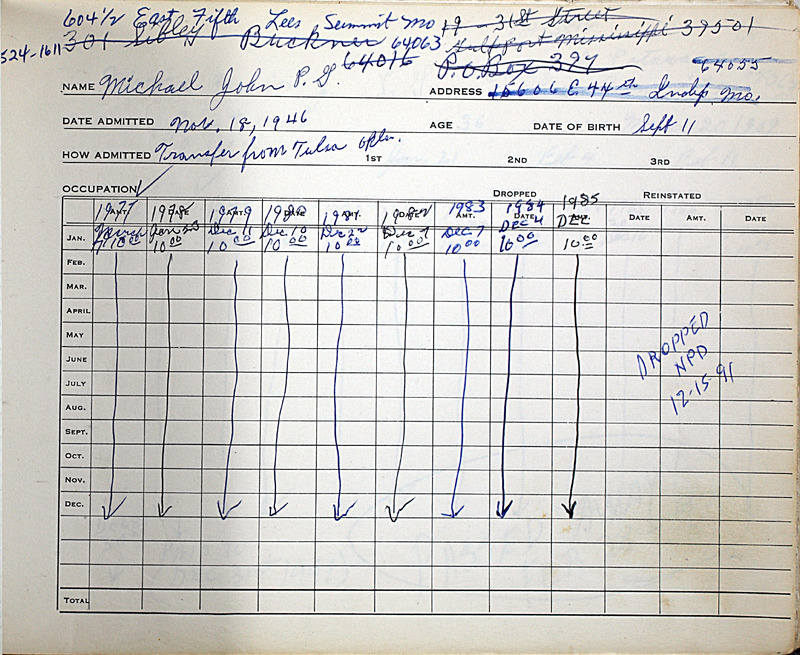 604 1/2 East Fifth Lees Summit Mo 19 - 31st Street
524-1611 301 Sibley Buckner 64063 Gulfport Mississippi 39501
64016 P.O. Box 397 64055
NAME Michael John P. G. ADDRESS 15606 E. 44th Indep. Mo.
DATE ADMITTED Nov. 18, 1946 AGE DATE OF BIRTH Sept 11
HOW ADMITTED Transfer from Tulsa Okla. 1ST 2ND 3RD
OCCUPATION DROPPED REINSTATED
1977 1978 1979 1980 1982 1983 1984 1985
AMT. DATE AMT. DATE AMT. DATE AMT. DATE AMT. DATE AMT. DATE
Dec 11 Dec 10 Dec 7 Dec. 7 DEC 4 DEC
JAN. 10 00 10 00 10 00 10 00 10 00 10 00 10 00 10 00 10 00
FEB.
MAR.
APRIL
MAY
JUNE
JULY
AUG.
SEPT.
OCT.
NOV.
DEC.
TOTAL
DROPPED
NPD
12-15-91